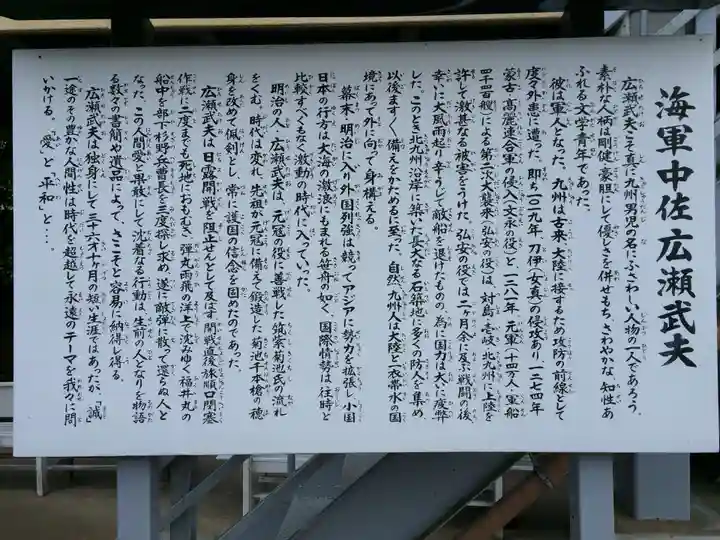 海軍中佐 広瀬武夫
広瀬武夫こそ真に九州男児の名にふさわしい人物の一人であろう。
素朴な人柄は剛健、豪胆にして優しさを併せもち、さわやかな、知性あ
ふれる文学青年であった。
彼は軍人となった。九州は古来、大陸に接するため攻防の前線として
度々外患に遭った。即ち一〇一九年、刀伊(女真)の侵攻あり、一二七四年
蒙古・高麗連合軍の侵入(文永の役)と一二八一年、元軍(十四万人、軍船
四千四百艘)による第二次大襲来(弘安の役)は、対島、壱岐、北九州に上陸を
許して激甚なる被害をうけた。弘安の役では二ヶ月余に及ぶ戦闘の後
幸いに大風雨起り辛うじて敵船を退けたものの、為に国力は大いに疲弊
した。このとき北九州沿岸に築いた長大なる石築地に多くの防人を集め、
以後ますます備えをかためるに至った。自然、九州人は大陸と一衣帯水の国
境にあって外に向って身構える。
幕末・明治に入り外国列強は競ってアジアに勢力を拡張し、小国
日本の行方は大海の激浪にもまれる笹舟の如く、国際情勢は往時と
比較すべくもなく激動の時代に入っていった。
明治の人・広瀬武夫は、元寇の役に善戦した筑紫菊池氏の流れ
をくむ。時代は変れ、先祖が元寇に備えて鍛造した菊池千本槍の穂
身を改めて佩剣とし、常に護国の信念を固めたのであった。
広瀬武夫は日露開戦を阻止せんとして及ばず開戦直後、旅順口閉塞
作戦に二度までも死地におもむき、弾丸雨飛の洋上で沈みゆく福井丸の
船中を部下杉野兵曹長を三度探し求め、遂に敵弾に散って還らぬ人と
なった。この人間愛と果敢にして沈着なる行動は、生前の人となりを物語
る数々の書簡や遺品によって、さこそと容易に納得し得る。
広瀬武夫は独身にして三十六才十月の短い生涯ではあったが、「誠」
一途のその豊かな人間性は時代を超越して永遠のテーマを我々に問
いかける。「愛」と「平和」と・・・